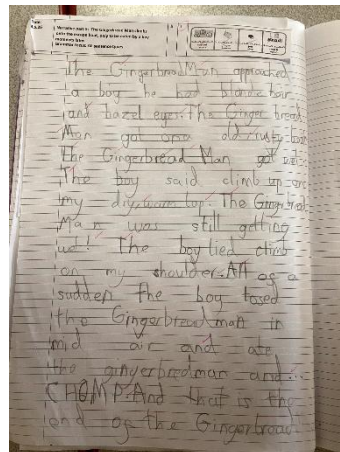 The GingerbreadMan approached
a boy he had blonde hair
and hazel eyes. The Ginger bread
Man got on a old rusty boat
The Gingerbread Man got wet
The boy said climb up on
my dry warm top. The Gingerbread
Man was still getting
wet! The boy tied climb
on my shoulder. All of a
sudden the boy tosed
the Gingerbread man in
mid air and ate
the gingerbredman and...
CHOMP. And that is the
end of the Gingerbread